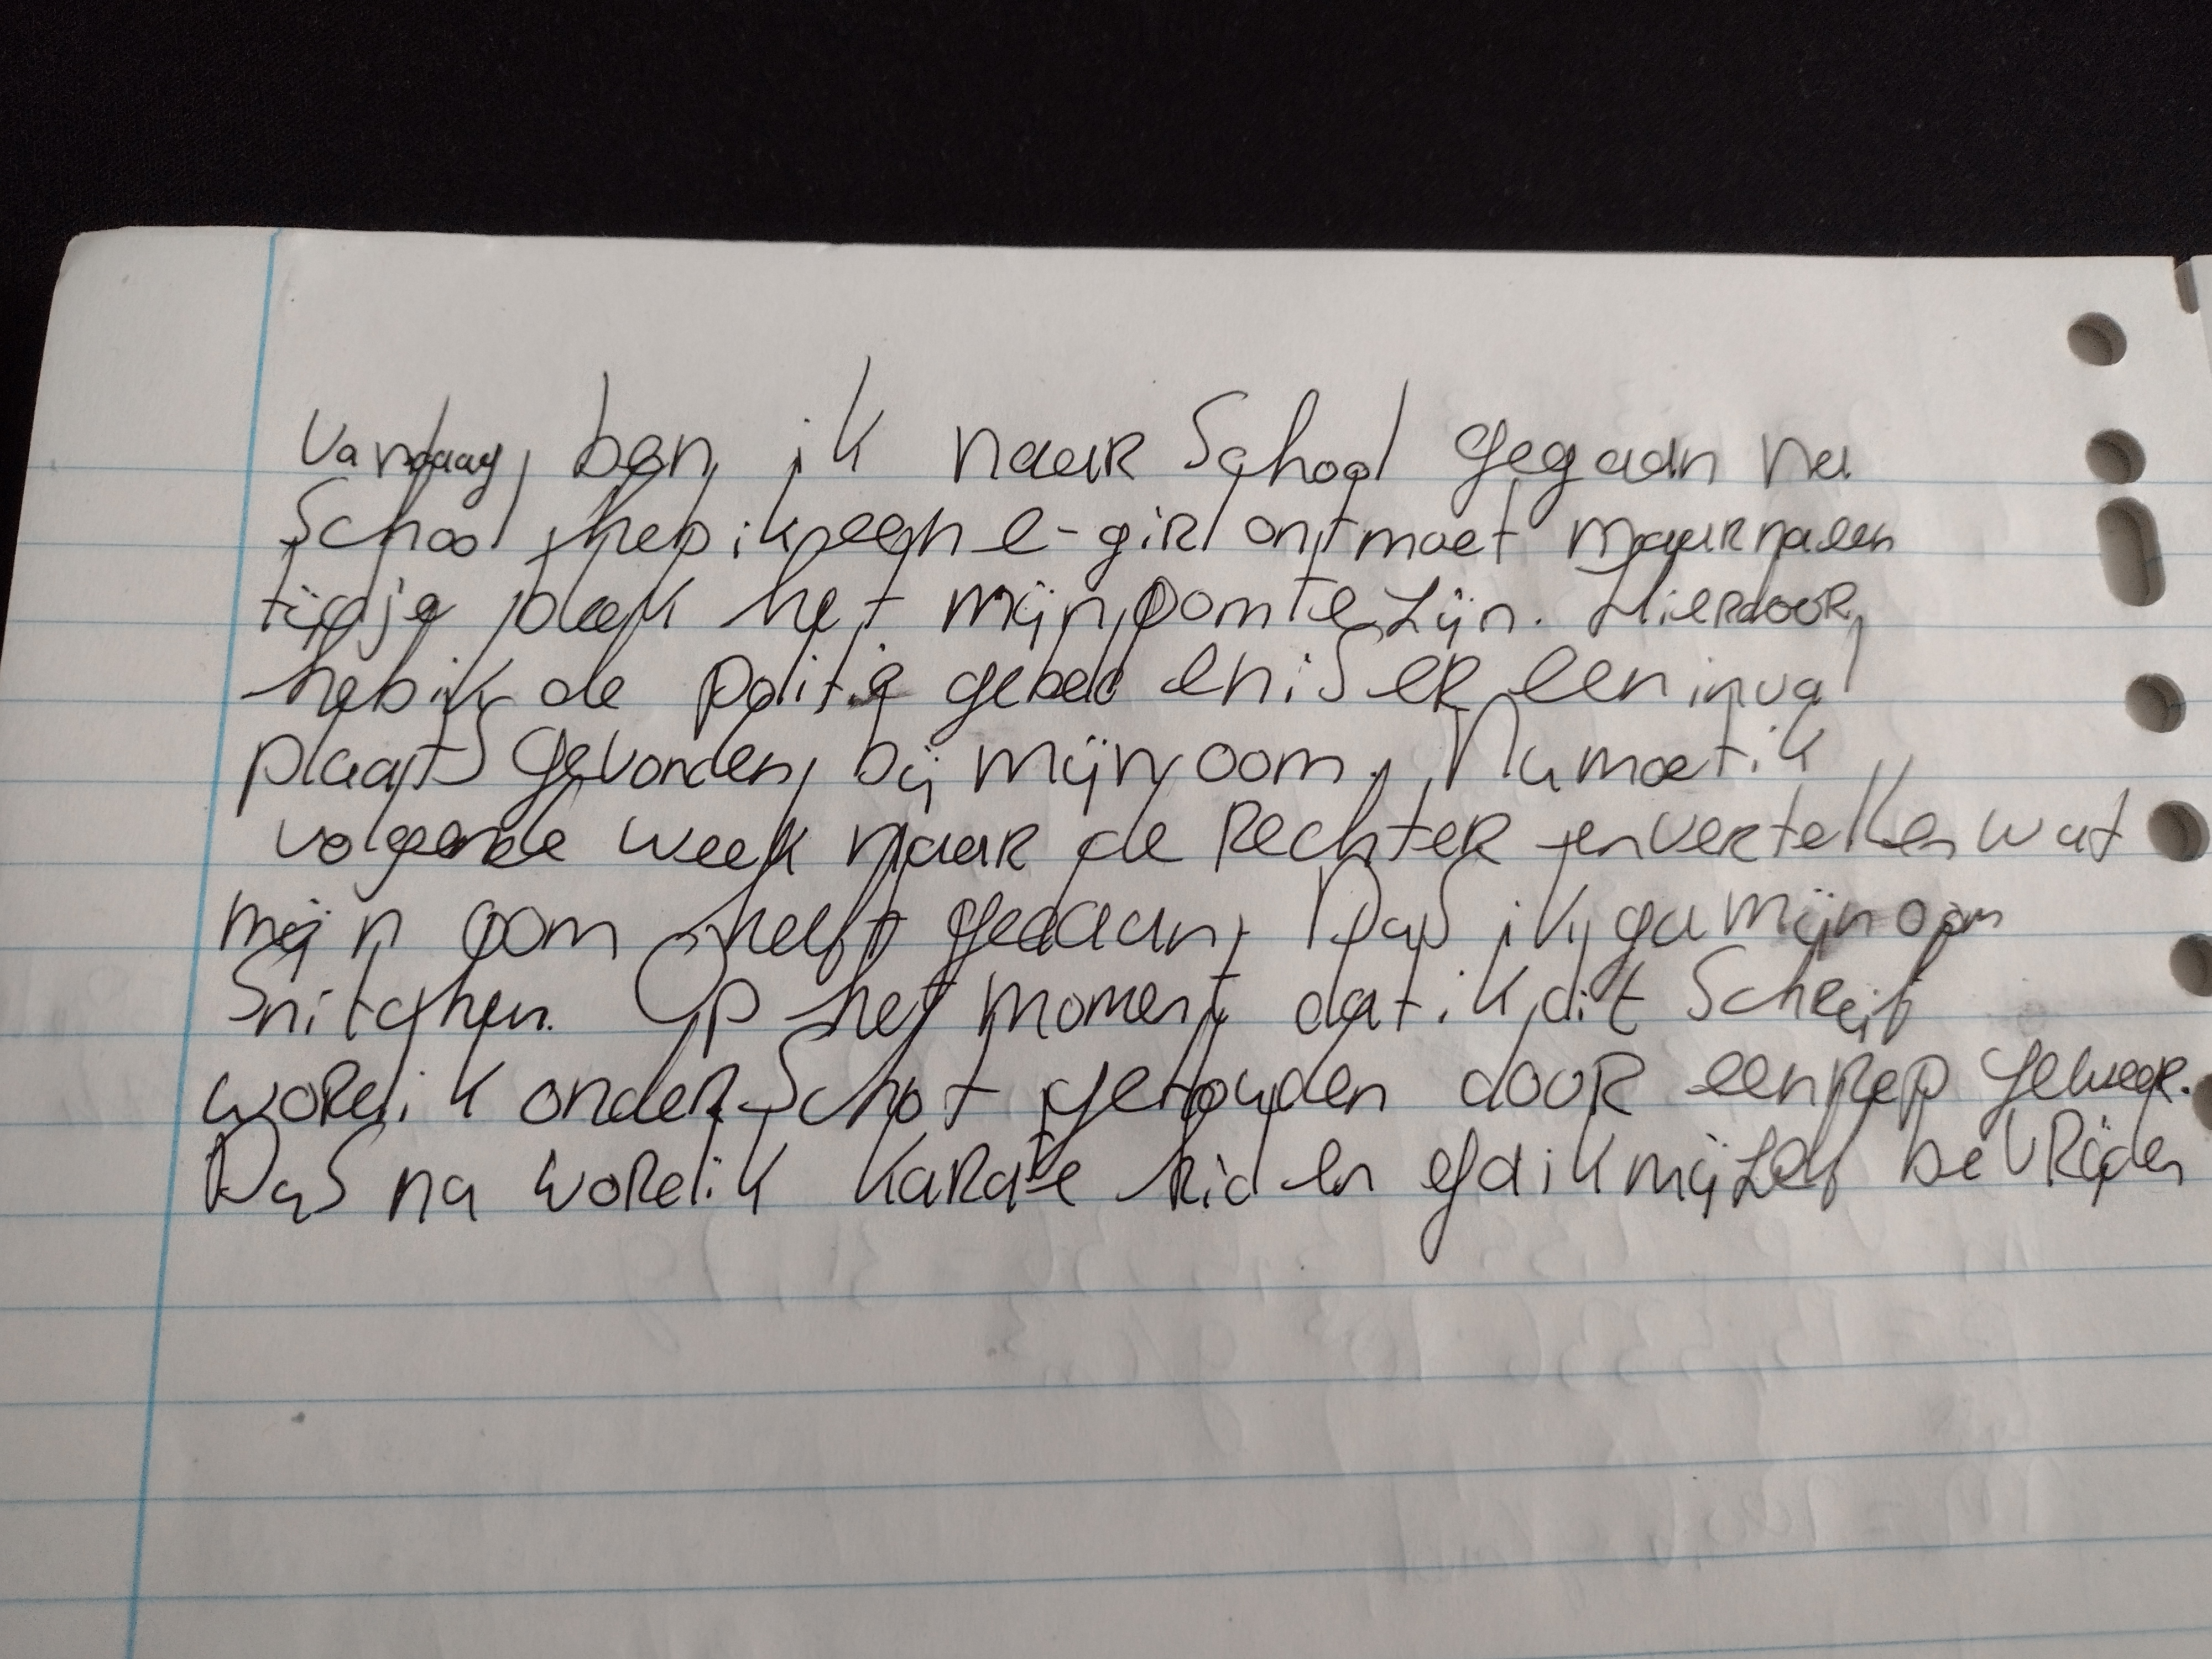 Vandaag ben ik naar School gegaan na
School heb ik een e-girl ontmoet maar na een
tijdje bleek het mijn oom te zijn. Hierdoor
heb ik de politie gebeld en is er een inval
plaats gevonden bij mijn oom. Nu moet ik
volgende week naar de rechter en vertellen wat
mijn oom heeft gedaan. Dus ik ga mijn oom
Snitchen. Op het moment dat ik dit Schrijf
word ik onder Schot gehouden door een nep geweer.
Dus nu word ik karate kid en ga ik mijzelf bevrijden